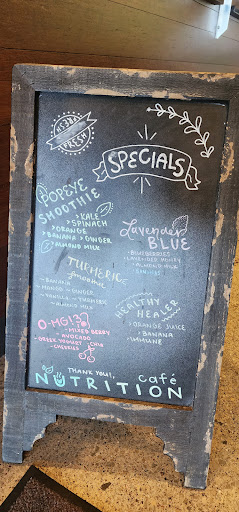 FRESH
SPECIALS
POPEYE
SMOOTHIE
> KALE
> SPINACH
> ORANGE
BANANA > GINGER
ALMOND MILK
Lavender
BLUE
- BLUEBERRIES
- LAVENDER HONEY
- ALMOND MILK
- BANANAS
TURMERIC
Smoothie
- BANANA
- MANGO - GINGER
- VANILLA - TURMERIC
- ALMOND MILK
HEALTHY
HEALER
- ORANGE JUICE
- BANANA
- IMMUNE
O-MG!3
- MIXED BERRY
AVOCADO
- GREEK YOGURT - CHIA
- CHERRIES
THANK YOU!,
NUTRITION café